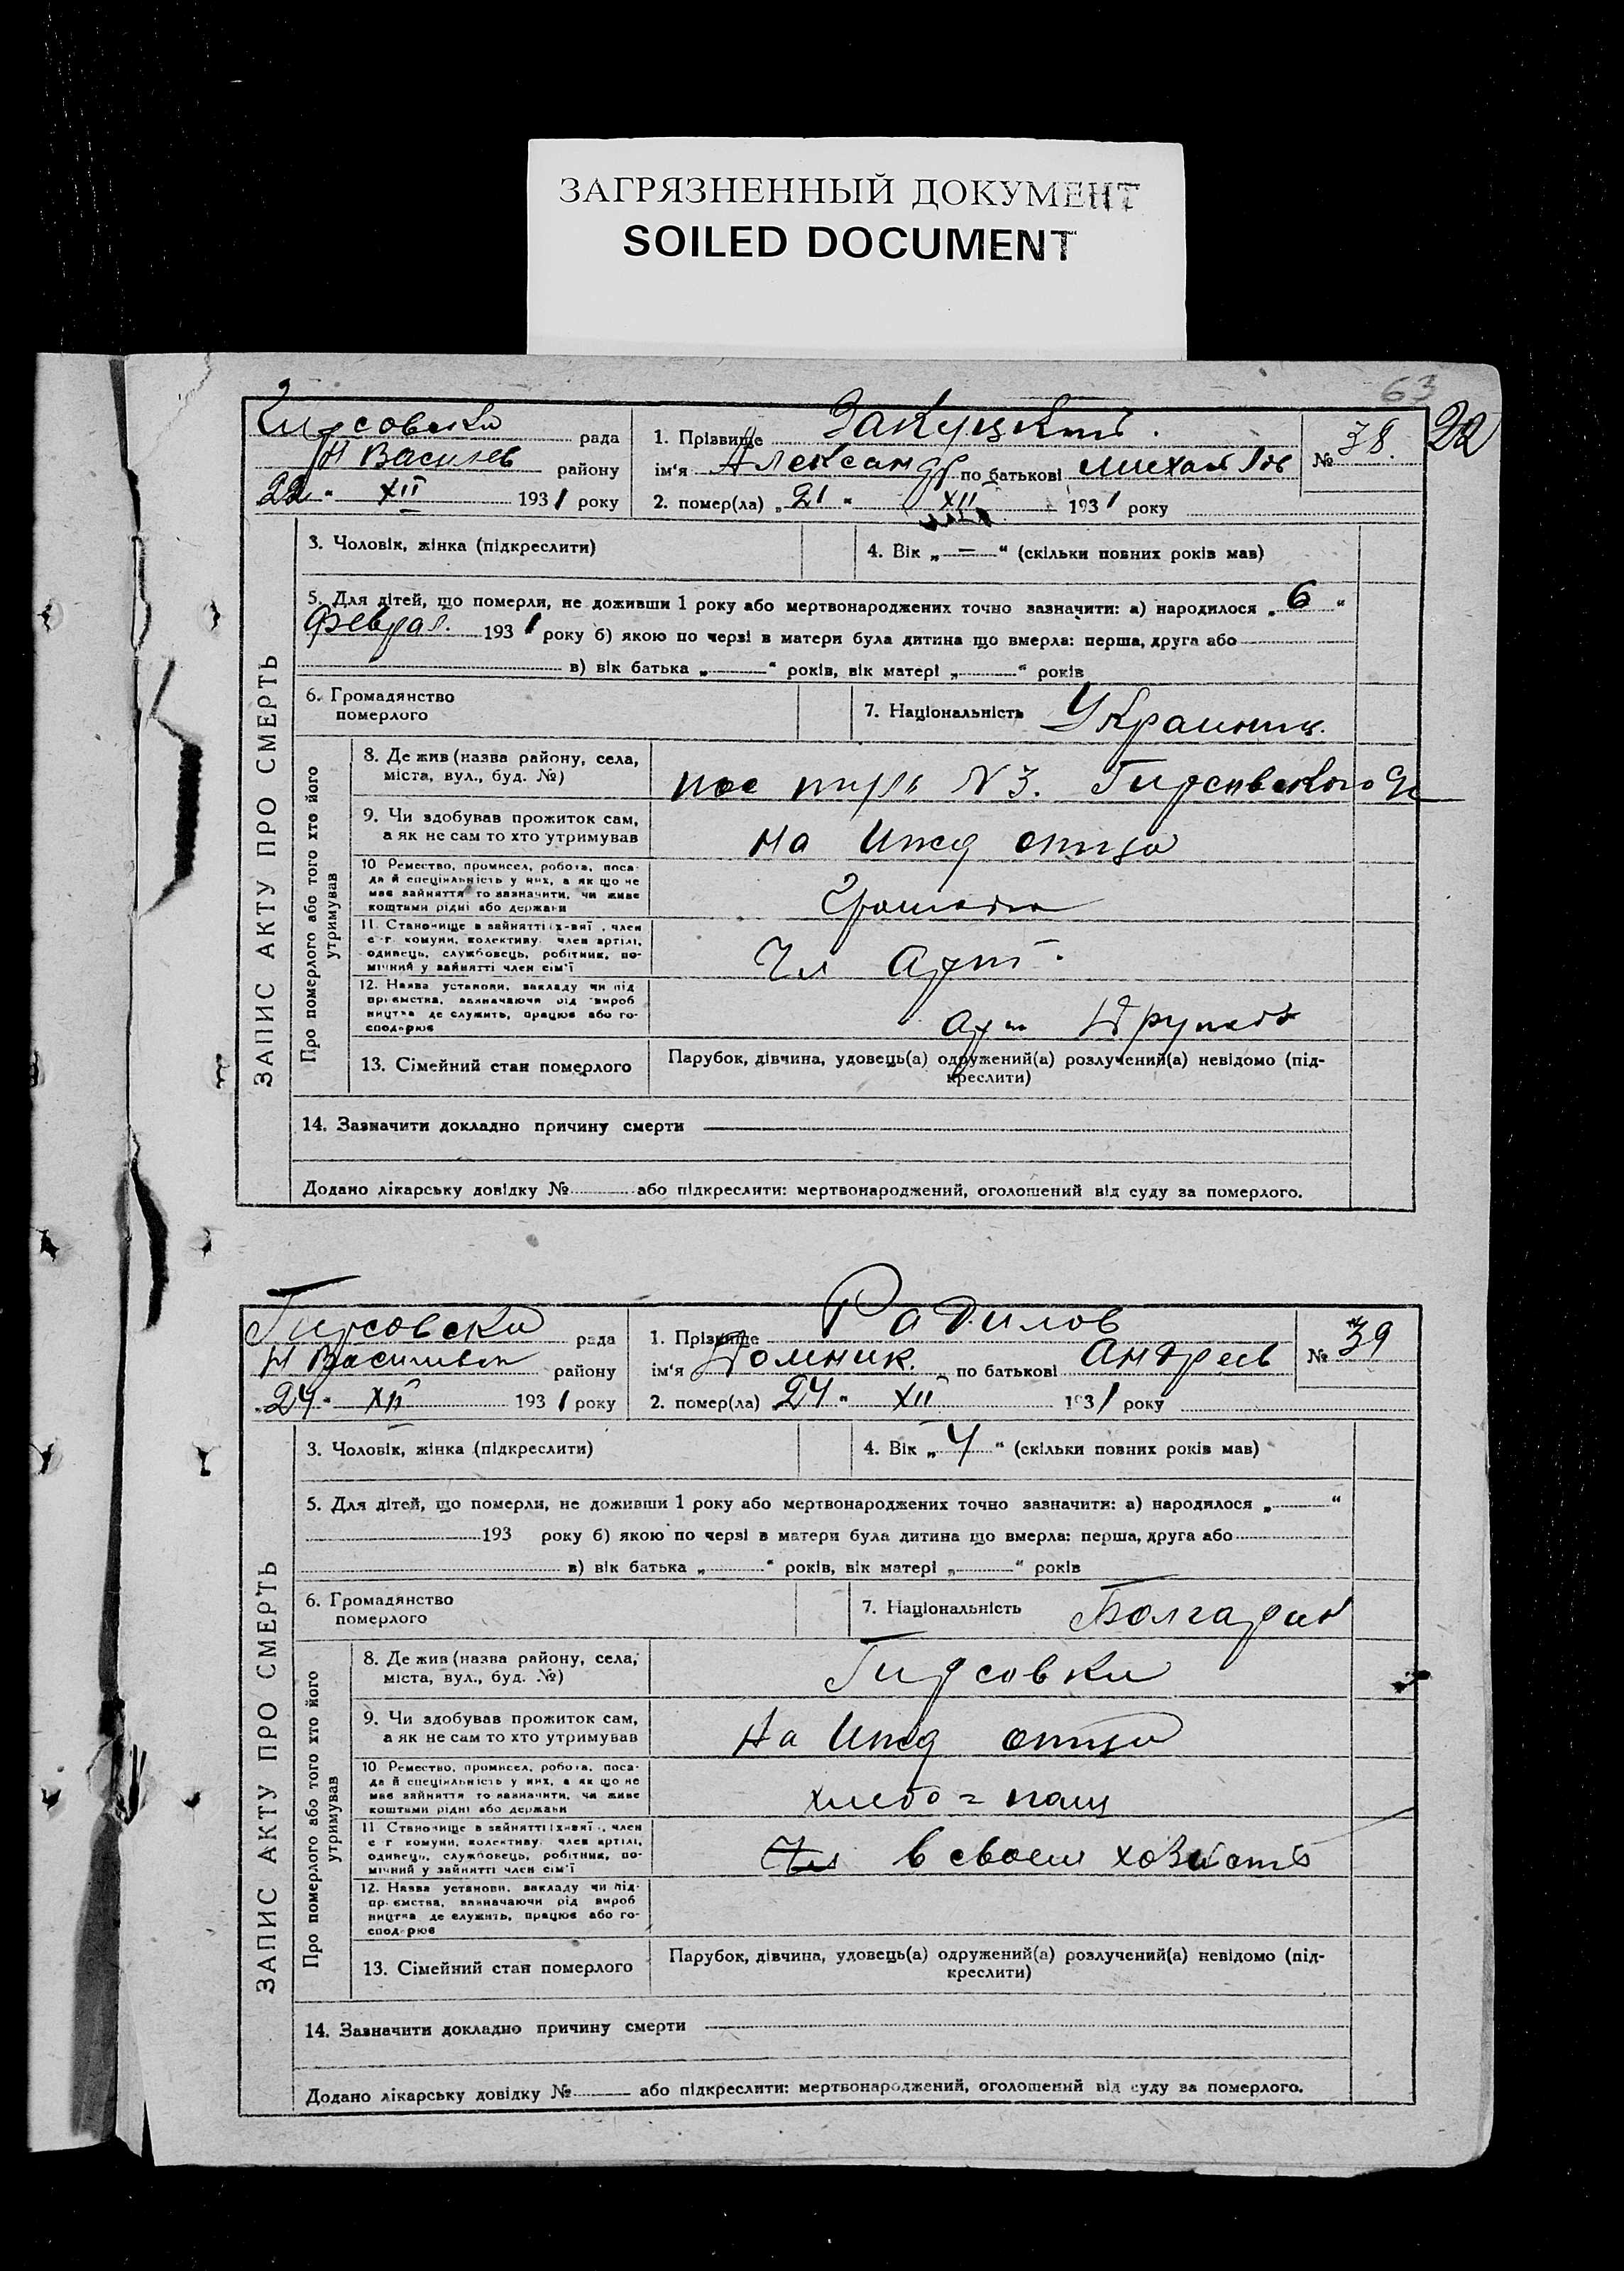 ЗАГРЯЗНЕННЫЙ ДОКУМЕНТ
SOILED DOCUMENT
63
22
ЗАПИС АКТУ ПРО СМЕРТЬ
рада
Н Василев району
22 " XII 1931 року
1. Прізвище
ім'я Александр по батькові Михайлов
№ 38.
2. помер(ла) „ 21 " XII 1931 року
3. Чоловік, жінка (підкреслити)
4. Вік „ — " (скільки повних років мав)
5. Для дітей, що померли, не доживши 1 року або мертвонароджених точно зазначити: а) народилося „ 6 "
Феврал. 1931 року б) якою по черзі в матери була дитина що вмерла: перша, друга або
в) вік батька „ " років, вік матері „ " років
6. Громадянство
померлого
7. Національність Украинец.
Про померлого або того хто його
утримував
8. Де жив (назва району, села,
міста, вул., буд. №)
N 3. Гирсовского
9. Чи здобував прожиток сам,
а як не сам то хто утримував
на Ижд отца
10 Ремество, промисел, робота, поса-
да й спеціяльність у них, а як що не
має зайняття то зазначити, чи живе
коштами рідні або держави
11. Становище в зайнятті (х-вяї, член
с г. комуни, колективу член артілі,
одинець, службовець, робітник, по-
мічний у зайнятті член сім'ї
Чл Арт.
12. Назва установи, закладу чи під
приємства, зазначаючи рід вироб
ництва де служить, працює або го-
сподарює
Арт
13. Сімейний стан померлого
Парубок, дівчина, удовець(а) одружений(а) розлучений(а) невідомо (під-
креслити)
14. Зазначити докладно причину смерти
Додано лікарську довідку № або підкреслити: мертвонароджений, оголошений від суду за померлого.
ЗАПИС АКТУ ПРО СМЕРТЬ
Гирсовска рада
Н Васильев району
„ 24 " XII 1931 року
1. Прізвище Радилов
ім'я Домник. по батькові Андреев
№ 39
2. помер(ла) 24 " XII 1931 року
3. Чоловік, жінка (підкреслити)
4. Вік „ 4 " (скільки повних років мав)
5. Для дітей, що померли, не доживши 1 року або мертвонароджених точно зазначити: а) народилося „ "
193 року б) якою по черзі в матери була дитина що вмерла: перша, друга або
в) вік батька „ " років, вік матері „ " років
6. Громадянство
померлого
7. Національність Болгарин
Про померлого або того хто його
утримував
8. Де жив (назва району, села,
міста, вул., буд. №)
Гирсовки
9. Чи здобував прожиток сам,
а як не сам то хто утримував
На Ижд отца
10 Ремество, промисел, робота, поса-
да й спеціяльність у них, а як що не
має зайняття то зазначити, чи живе
коштами рідні або держави
хлебо = паш
11 Становище в зайнятті (х-вяї, член
с г комуни, колективу член артілі,
одинець, службовець, робітник, по-
мічний у зайнятті член сім'ї
в своем
12. Назва установи, закладу чи під-
приємства, зазначаючи рід вироб
ництва де служить, працює або го-
сподарює
13. Сімейний стан померлого
Парубок, дівчина, удовець(а) одружений(а) розлучений(а) невідомо (під-
креслити)
14. Зазначити докладно причину смерти
Додано лікарську довідку № або підкреслити: мертвонароджений, оголошений від суду за померлого.